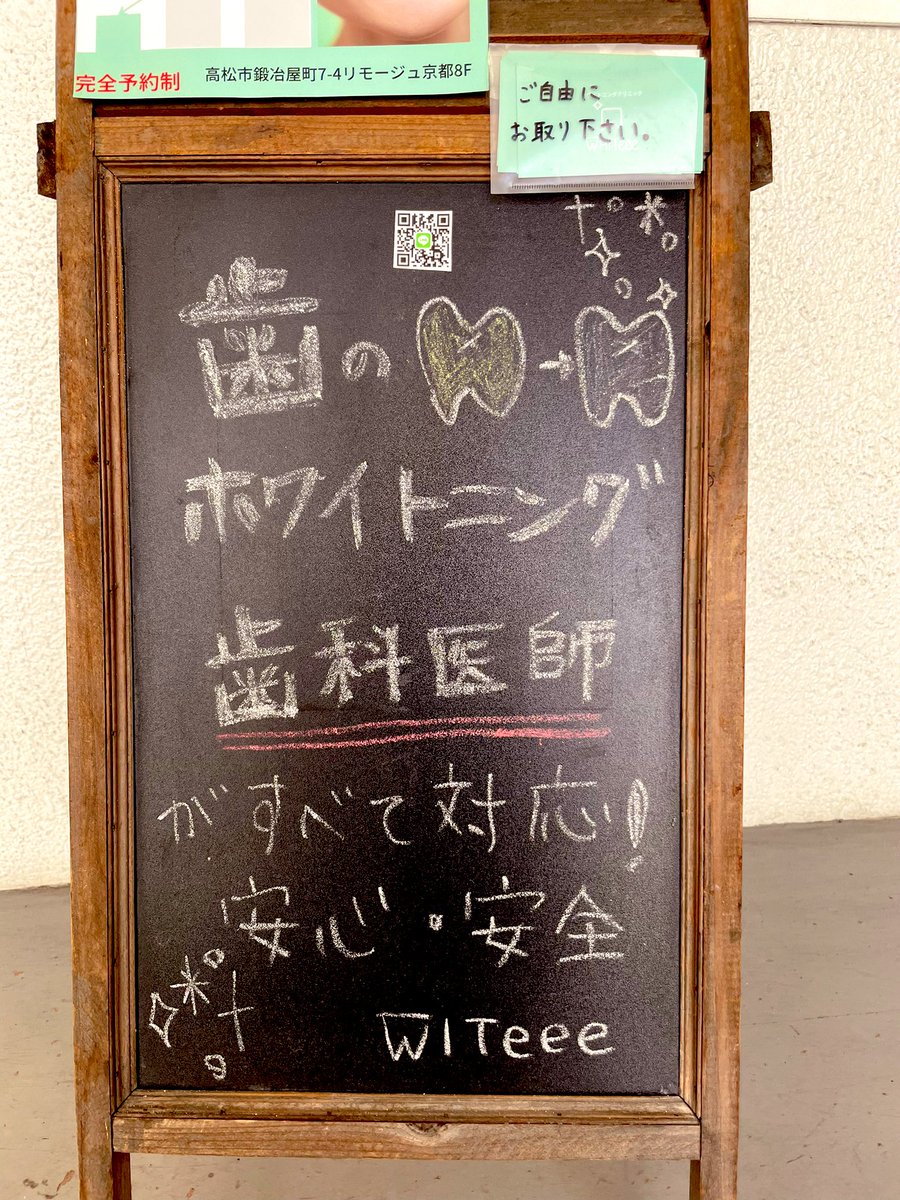 完全予約制 高松市鍛冶屋町7-4リモージュ京都8F
ご自由に
お取り下さい。
歯の
ホワイトニング
歯科医師
がすべて対応!
安心・安全
WITeee